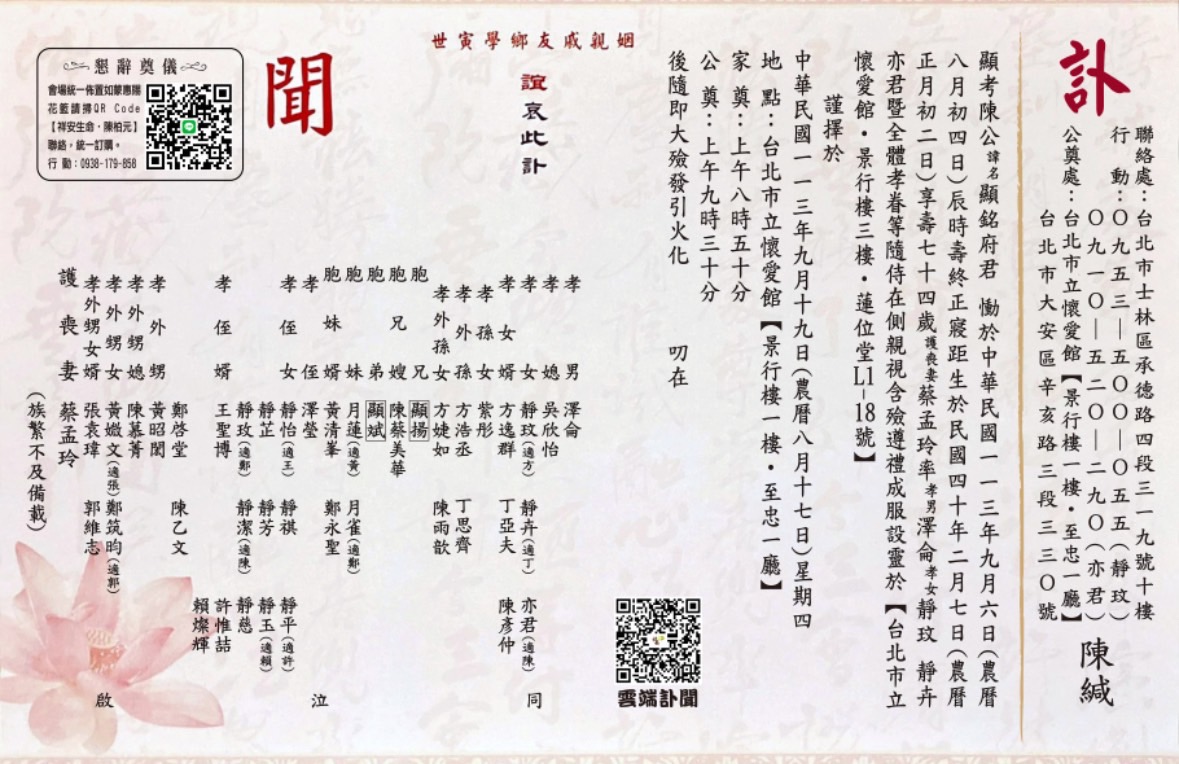 訃
聯絡處：台北市士林區承德路四段三一九號十樓
行動：〇九五三—五〇〇—〇五五(靜玟)
〇九一〇—五二〇—二九〇(亦君)
公奠處：台北市立懷愛館【景行樓一樓・至忠一廳】
台北市大安區辛亥路三段三三〇號
陳緘
顯考陳公諱名顯銘府君　慟於中華民國一一三年九月六日(農曆
八月初四日)辰時壽終正寢距生於民國四十年二月七日(農曆
正月初二日)享壽七十四歲護喪妻蔡孟玲率孝男澤侖孝女靜玟　靜卉
亦君暨全體孝眷等隨侍在側親視含殮遵禮成服設靈於【台北市立
懷愛館・景行樓三樓・蓮位堂L1-18號】
謹擇於
中華民國一一三年九月十九日(農曆八月十七日)星期四
地點：台北市立懷愛館【景行樓一樓・至忠一廳】
家奠：上午八時五十分
公奠：上午九時三十分
後隨即大殮發引火化　叨在
世寅學鄉友戚親姻
誼哀此訃
聞
孝男　澤侖
孝媳　吳欣怡
孝女　靜玟(適方)　靜卉(適丁)　亦君(適陳)
孝女婿　方逸群　丁亞夫　陳彥仲
孝孫女　紫彤
孝外孫　方浩丞　丁思齊
孝外孫女　方婕如　陳雨歆
胞兄　顯揚
胞兄嫂　陳蔡美華
胞弟　顯斌
胞妹　月蓮(適黃)　月雀(適鄭)
胞妹婿　黃清峯　鄭永聖
孝侄　澤瑩
孝侄女　靜怡(適王)　靜祺　靜平(適許)
靜芷　靜芳　靜玉(適賴)
靜玫(適鄭)　靜潔(適陳)　靜慈
孝侄婿　王聖博　許惟喆
賴燦輝
鄭啓堂　陳乙文
孝外甥　黃昭閔
孝外甥媳　陳慕菁
孝外甥女　黃媺文(適張)　鄭筑昀(適郭)
孝外甥女婿　張袁瑋　郭維志
護喪妻　蔡孟玲
(族繁不及備載)
同
泣
啟
懇辭奠儀
會場統一佈置如蒙惠賜
花籃請掃QR Code
【祥安生命・陳柏元】
聯絡，統一訂購。
行動：0938-179-858
雲端訃聞